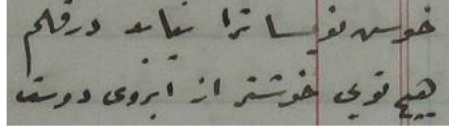 خوس نویسا ترا نیاید در قلم
هیچ نونی خوشتر از ابروی دوست